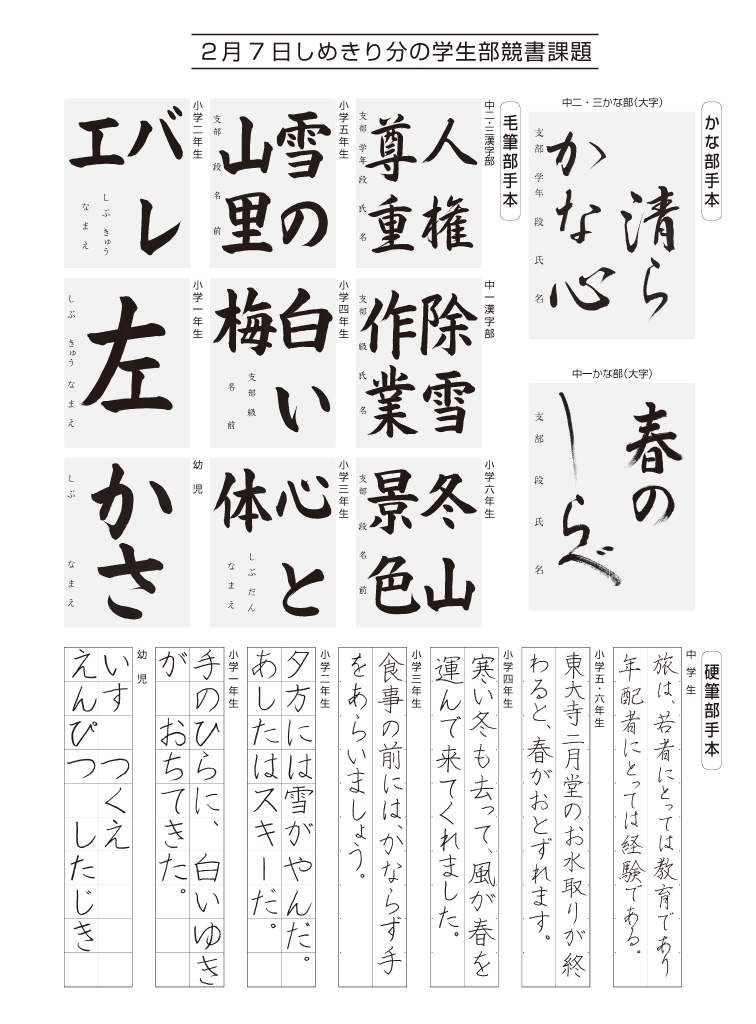 2月7日しめきり分の学生部競書課題
かな部手本
中二・三かな部(大字)
清ら
かな心
支部 学年 段 氏名
中一かな部(大字)
春の
しらべ
支部 段 氏名
毛筆部手本
中二・三漢字部
人権
尊重
支部 学年 段 氏名
中一漢字部
除雪
作業
支部 級 氏名
小学六年生
冬山
景色
支部 段 名前
小学五年生
雪の
山里
支部 段 名前
小学四年生
白い
梅
支部 級
名前
小学三年生
心と
体
しぶ だん
なまえ
小学二年生
バレ
エ
しぶ きゅう
なまえ
小学一年生
左
しぶ きゅう なまえ
幼児
かさ
しぶ なまえ
硬筆部手本
中学生
旅は、若者にとっては教育であり
年配者にとっては経験である。
小学五・六年生
東大寺二月堂のお水取りが終
わると、春がおとずれます。
小学四年生
寒い冬も去って、風が春を
運んで来てくれました。
小学三年生
食事の前には、かならず手
をあらいましょう。
小学二年生
夕方には雪がやんだ。
あしたはスキーだ。
小学一年生
手のひらに、白いゆき
が おちてきた。
幼児
いす つくえ
えんぴつ したじき